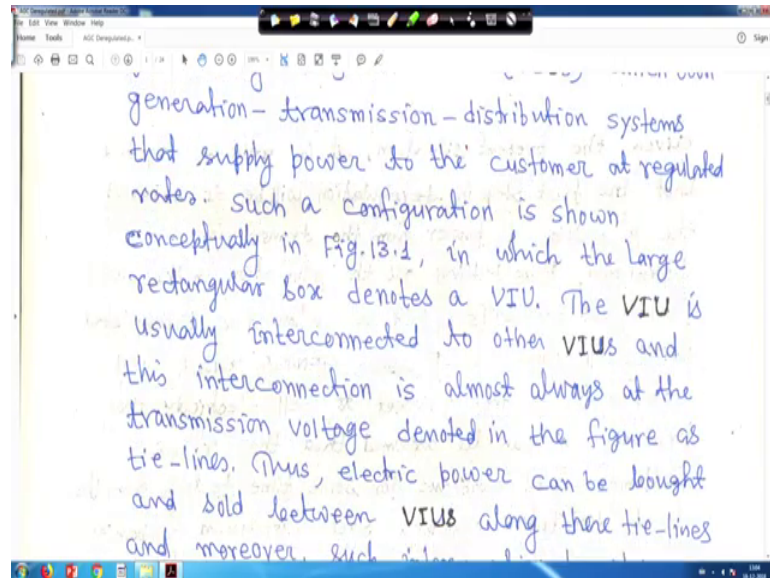 AGC Deregulated.pdf - Adobe Acrobat Reader DC
File Edit View Window Help
Home Tools AGC Deregulated.p... × Sign
generation – transmission – distribution systems
that supply power to the customer at regulated
rates. Such a configuration is shown
conceptually in Fig. 13.1, in which the large
rectangular box denotes a VIU. The VIU is
usually interconnected to other VIUs and
this interconnection is almost always at the
transmission voltage denoted in the figure as
tie-lines. Thus, electric power can be bought
and sold between VIUs along these tie-lines
and moreover, such